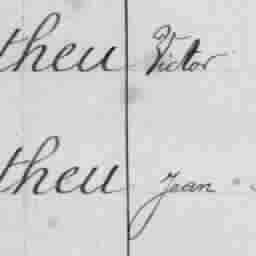 theu Victor
theu Jean